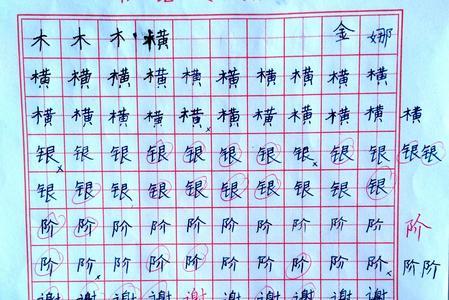 木 木 木 横 金 娜
横 横 横 横 横 横 横 横 横 横
横 横 横 横 横 横 横 横 横 横 横
银 银 银 银 银 银 银 银 银 银 银银
银 银 银 银 银 银 银 银 银 银
阶 阶 阶 阶 阶 阶 阶 阶 阶 阶 阶
阶 阶 阶 阶 阶 阶 阶 阶 阶 阶 阶阶
谢 谢 谢 谢 谢 谢 谢 谢 谢 谢